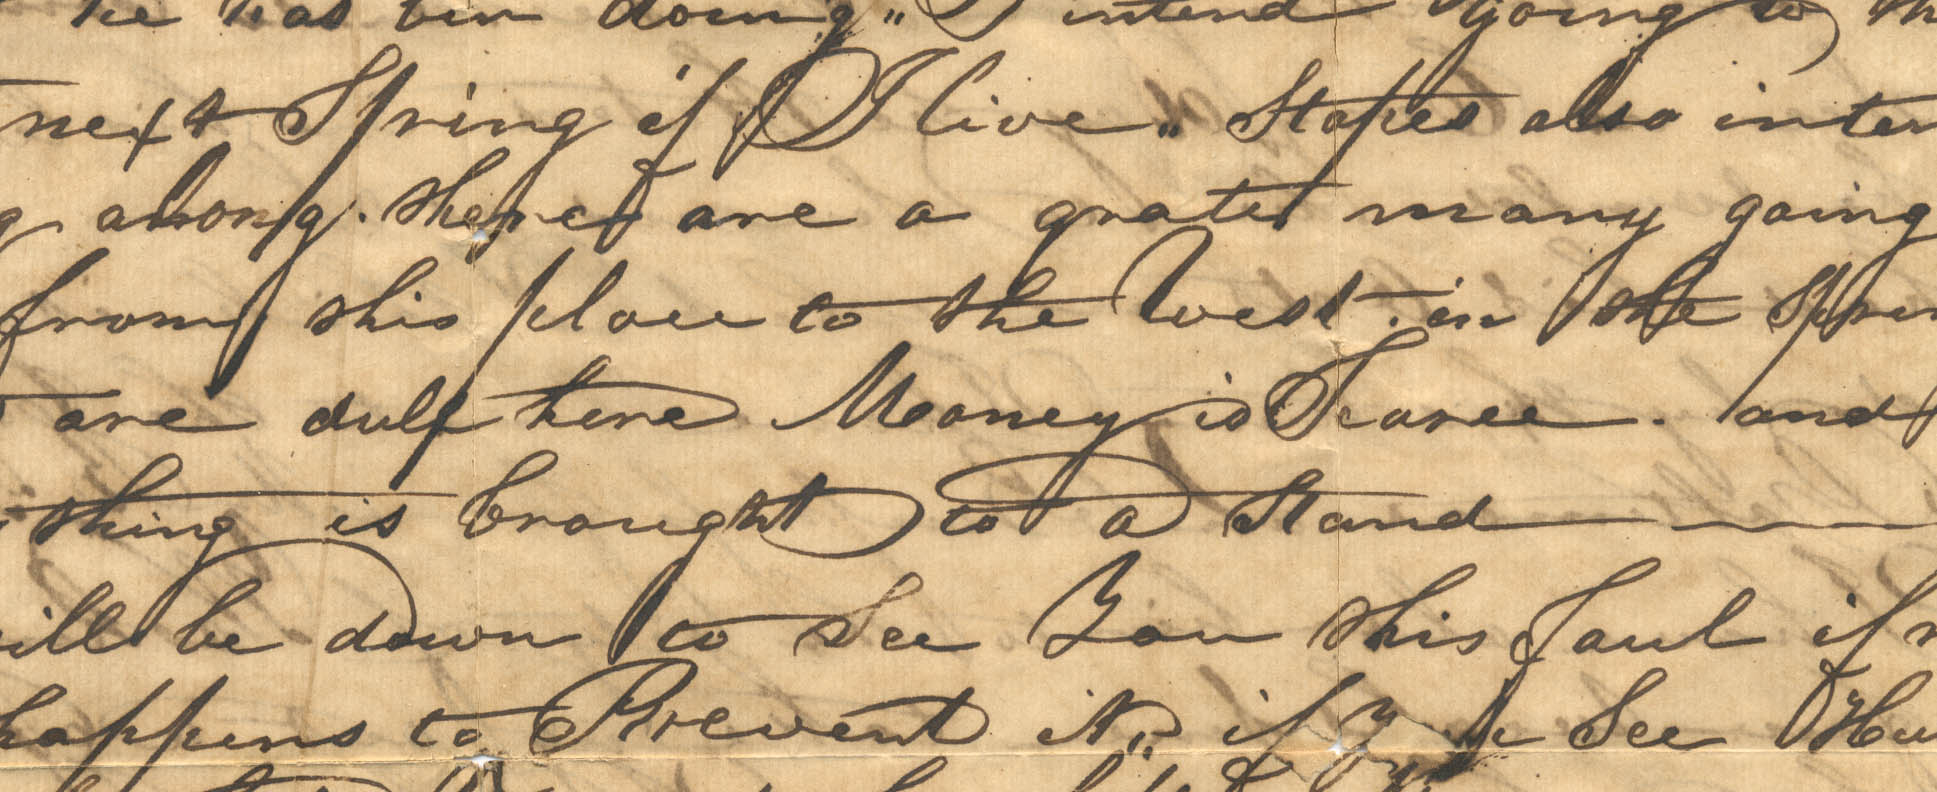 he has bin doing,, I intend going to th
next Spring if I live,, Stapes also inten
g along. there are a grate many going
from this place to the West. in the Sprin
are dull here Mooney is Scarce. and
thing is brought to a Stand
ill be down to See You this Faul if n
happens to Prevent it,, if See Hu